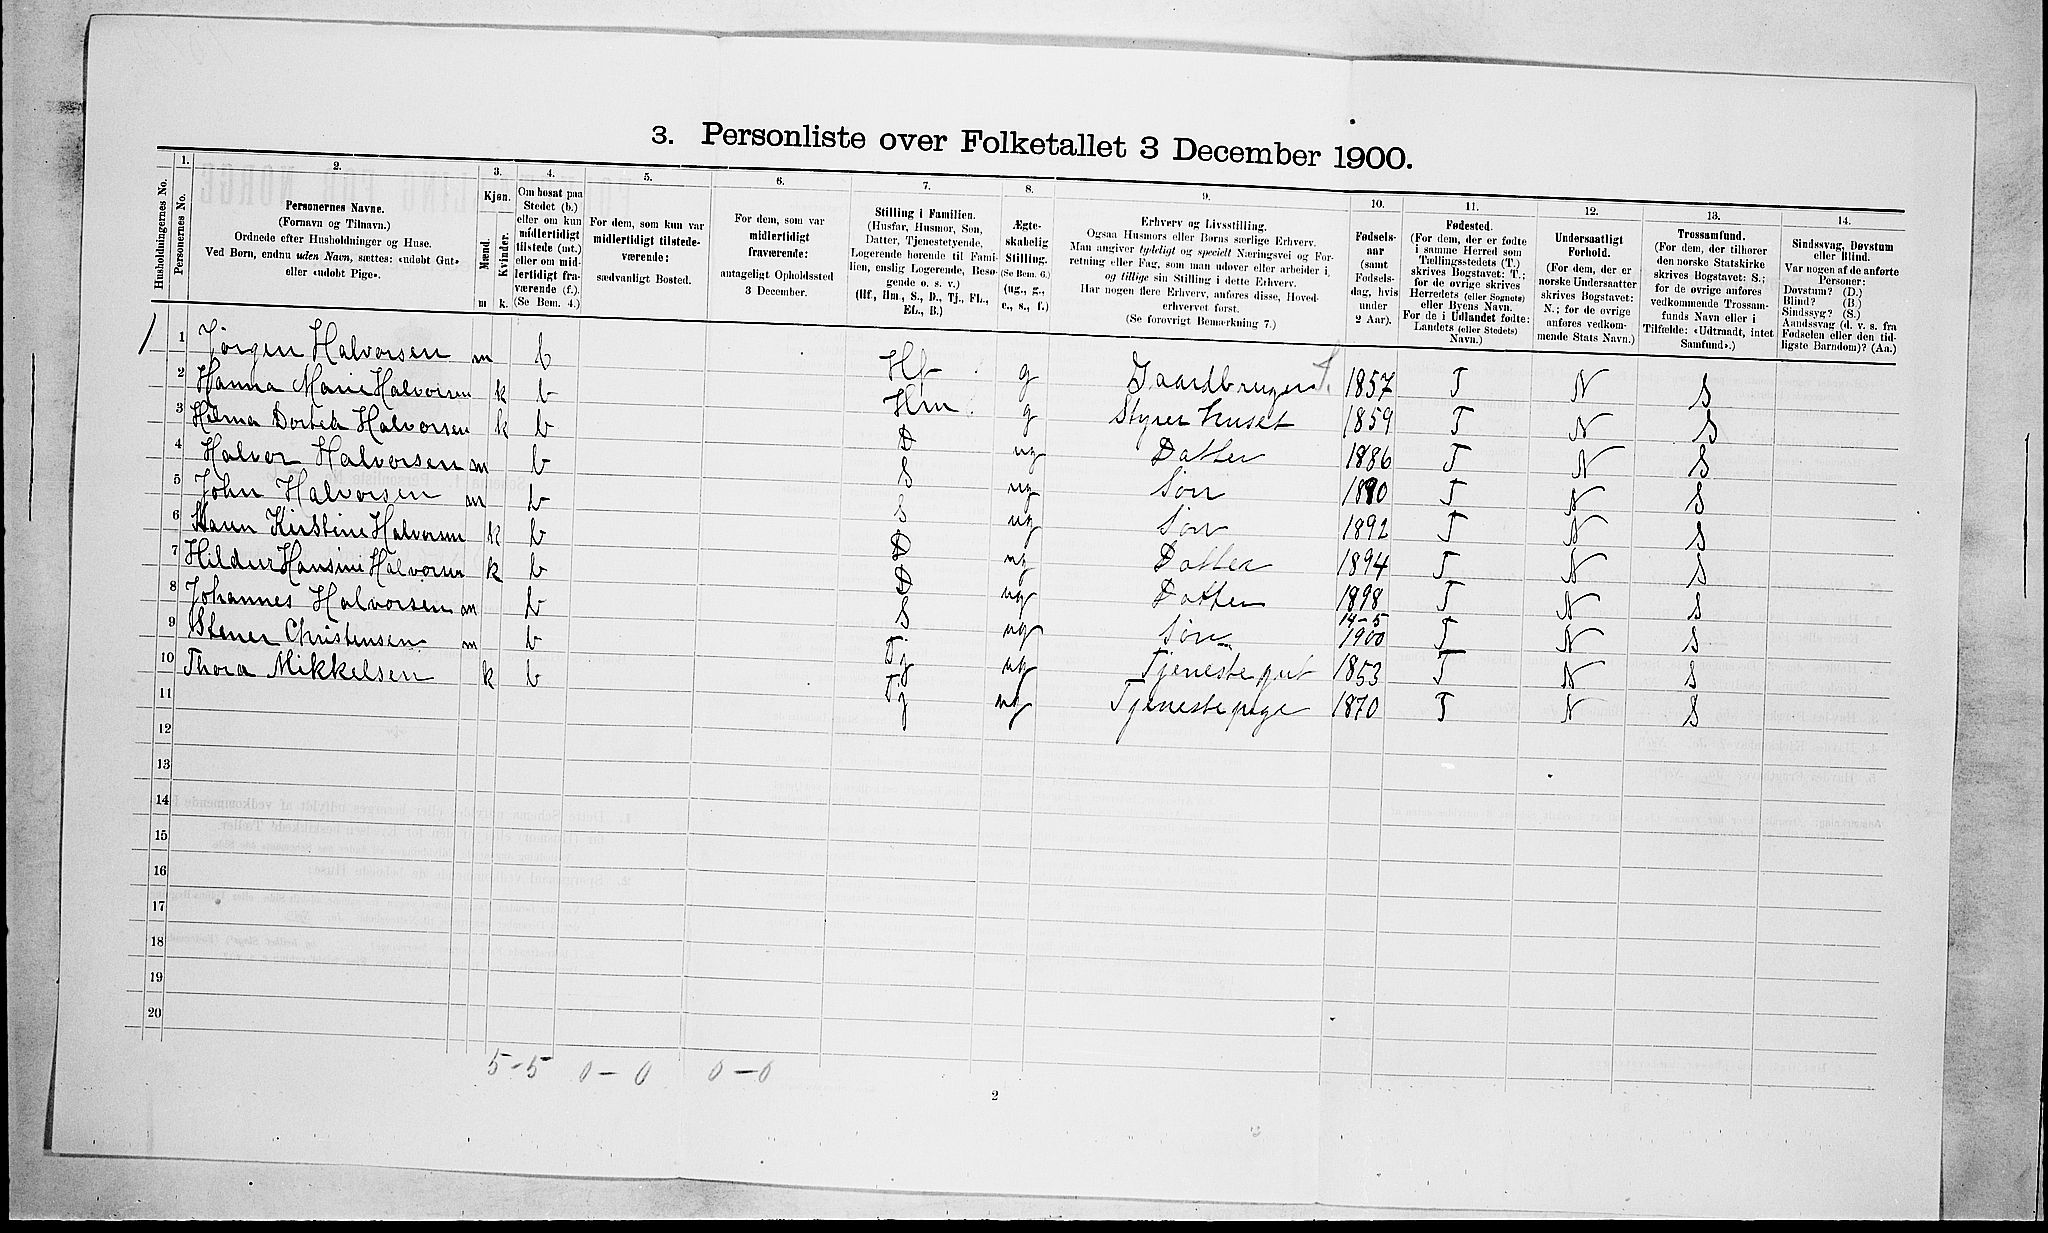 3. Personliste over Folketallet 3 December 1900.
1. 2. 3. 4. 5. 6. 7. 8. 9. 10. 11. 12. 13. 14.
Husholdningernes No.
Personernes No.
Personernes Navne.
(Fornavn og Tilnavn.)
Ordnede efter Husholdninger og Huse.
Ved Børn, endnu uden Navn, sættes: «udøbt Gut»
eller «udøbt Pige».
Kjøn.
Mænd.
Kvinder.
m k.
Om bosat paa
Stedet (b.)
eller om kun
midlertidigt
tilstede (mt.)
eller om mid-
lertidigt fra-
værende (f.).
(Se Bem. 4.)
For dem, som kun var
midlertidigt tilstede-
værende:
sædvanligt Bosted.
For dem, som var
midlertidigt
fraværende:
antageligt Opholdssted
3 December.
Stilling i Familien.
(Husfar, Husmor, Søn,
Datter, Tjenestetyende,
Logerende hørende til Fami-
lien, enslig Logerende, Besø-
gende o. s. v.)
(Hf., Hm., S., D., Tj., Fl.,
EL., B.)
Ægte-
skabelig
Stilling.
(Se Bem. 6.)
(ug., g.,
e., s., f.)
Erhverv og Livsstilling.
Ogsaa Husmors eller Børns særlige Erhverv.
Man angiver tydeligt og specielt Næringsvei og For-
retning eller Fag, som man udøver eller arbeider i,
og tillige sin Stilling i dette Erhverv.
Har nogen flere Erhverv, anføres disse, Hoved-
erhvervet først.
(Se forøvrigt Bemærkning 7.)
Fødsels-
aar
(samt
Fødsels-
dag, hvis
under
2 Aar).
Fødested.
(For dem, der er fødte
i samme Herred som
Tællingsstedets (T.)
skrives Bogstavet: T.;
for de øvrige skrives
Herredets (eller Sognets)
eller Byens Navn.
For de i Udlandet fødte:
Landets (eller Stedets)
Navn.)
Undersaatligt
Forhold.
(For dem, der er
norske Undersaatter
skrives Bogstavet:
N.; for de øvrige
anføres vedkom-
mende Stats Navn.)
Trossamfund.
(For dem, der tilhører
den norske Statskirke
skrives Bogstavet: S.;
for de øvrige anføres
vedkommende Trossam-
funds Navn eller i
Tilfælde: «Udtraadt, intet
Samfund».)
Sindssvag, Døvstum
eller Blind.
Var nogen af de anførte
Personer:
Døvstum? (D.)
Blind? (B.)
Sindssyg? (S.)
Aandssvag (d. v. s. fra
Fødselen eller den tid-
ligste Barndom)? (Aa.)
1 1 Jørgen Halvorsen m b Hf g Gaardbruger S. 1857 T N S
2 Hanna Marie Halvorsen k b Hm g Styrer huset 1859 T N S
3 Helma Dortea Halvorsen k b D ug Datter 1886 T N S
4 Halvor Halvorsen m b S ug Søn 1890 T N S
5 John Halvorsen m b S ug Søn 1892 T N S
6 Karen Kirstine Halvorsen k b D ug Datter 1894 T N S
7 Hildur Hansine Halvorsen k b D ug Datter 1898 T N S
8 Johannes Halvorsen m b S ug Søn 14-5 1900 T N S
9 Stener Christensen m b Tj ug Tjenestegut 1853 T N S
10 Thora Mikkelsen k b Tj ug Tjenestepige 1870 T N S
11
12
13
14
15
16
17
18
19
20
5-5 0-0 0-0
2